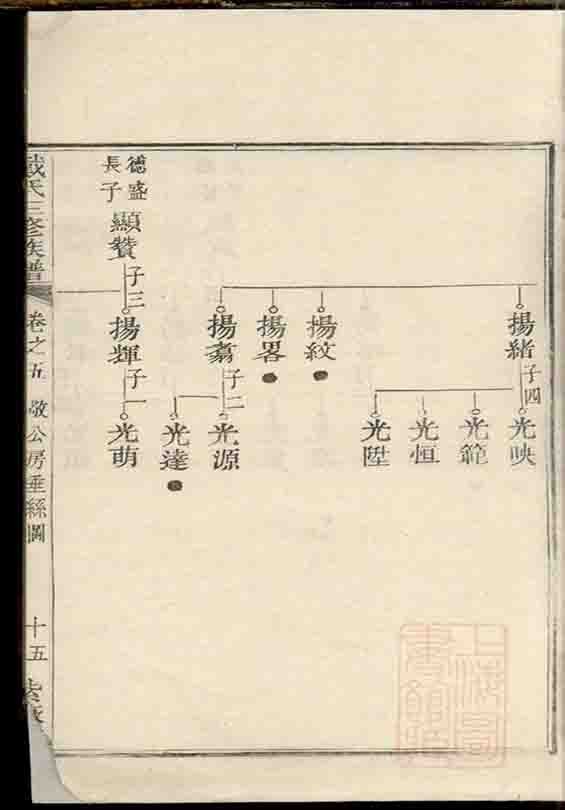 揚緒
子四
光映
光範
光恒
光陞
揚紋
揚畧
揚翥
子二
光源
光達
德盛
長子
顯贊
子三
揚輝
子一
光萌
戴氏三修族譜
卷之五
敬公房垂絲圖
十五
上海圖書館藏